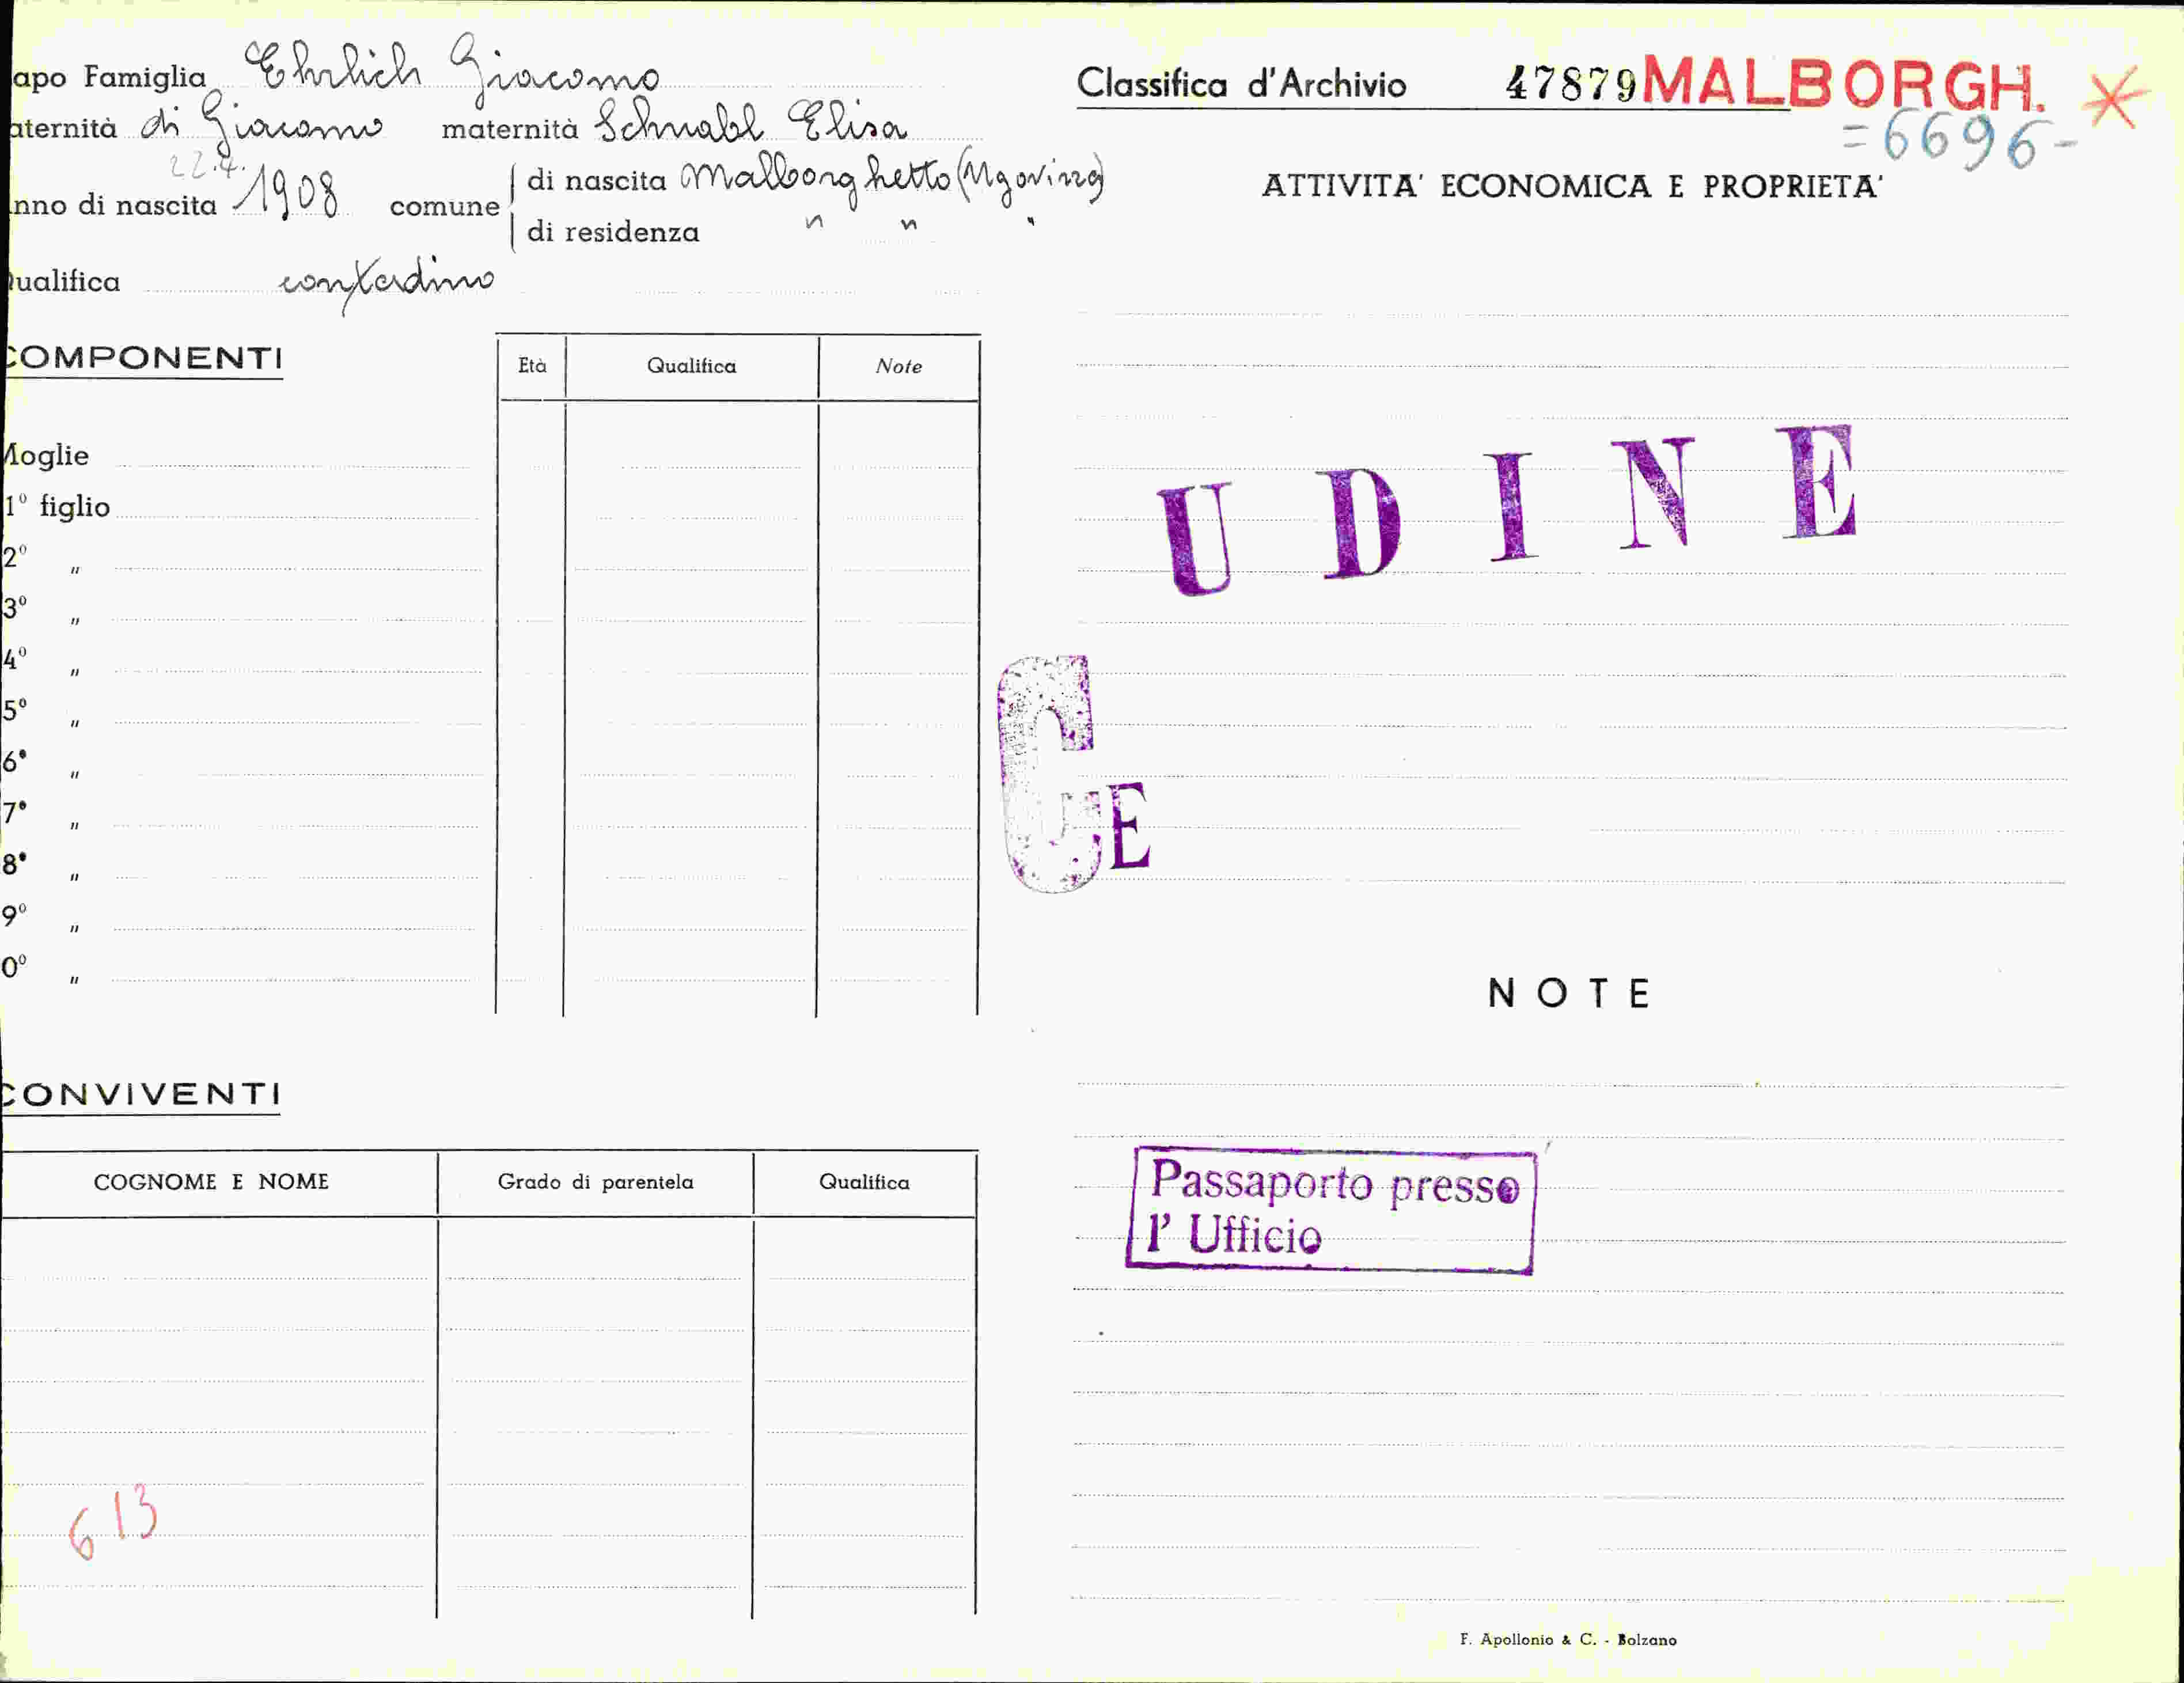 apo Famiglia Ehrlich Giacomo
aternità di Giacomo maternità Schnabl Elisa
22.4.
nno di nascita 1908 comune di nascita Malborghetto (Ugovizza)
di residenza " " "
ualifica contadino
COMPONENTI
Età Qualifica Note
Moglie
1° figlio
2° "
3° "
4° "
5° "
6° "
7° "
8° "
9° "
0° "
CONVIVENTI
COGNOME E NOME Grado di parentela Qualifica
613
Classifica d'Archivio 47879 MALBORGH.
=6696-
ATTIVITA' ECONOMICA E PROPRIETA'
UDINE
C E
NOTE
Passaporto presso
l' Ufficio
F. Apollonio & C. - Bolzano